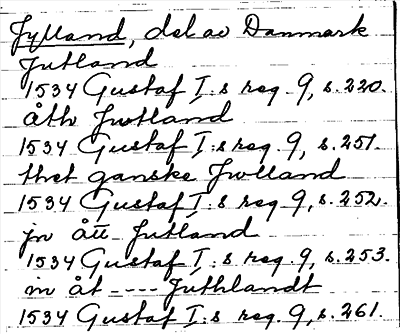 Jylland, del av Danmark
Jutland
1534 Gustaf I:s reg. 9, s.220.
åth Jwtland
1534 Gustaf I:s reg. 9, s.251.
thet ganske Jwtland
1534 Gustaf I:s reg. 9, s.252.
jn ått Jutland
1534 Gustaf I:s reg. 9, s.253.
in åt ---- Juthlandt
1534 Gustaf I:s reg. 9, s.261.